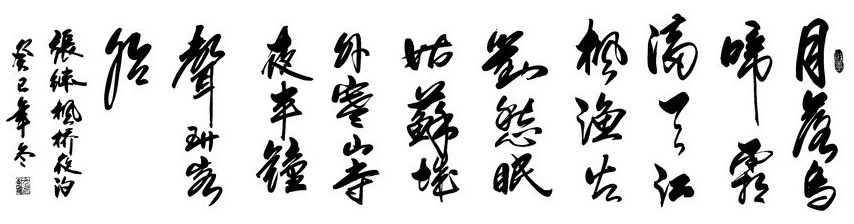 月落乌
啼霜
满天江
枫渔火
對愁眠
姑蘇城
外寒山寺
夜半鐘
聲到客
船
張継枫桥夜泊
癸巳年冬